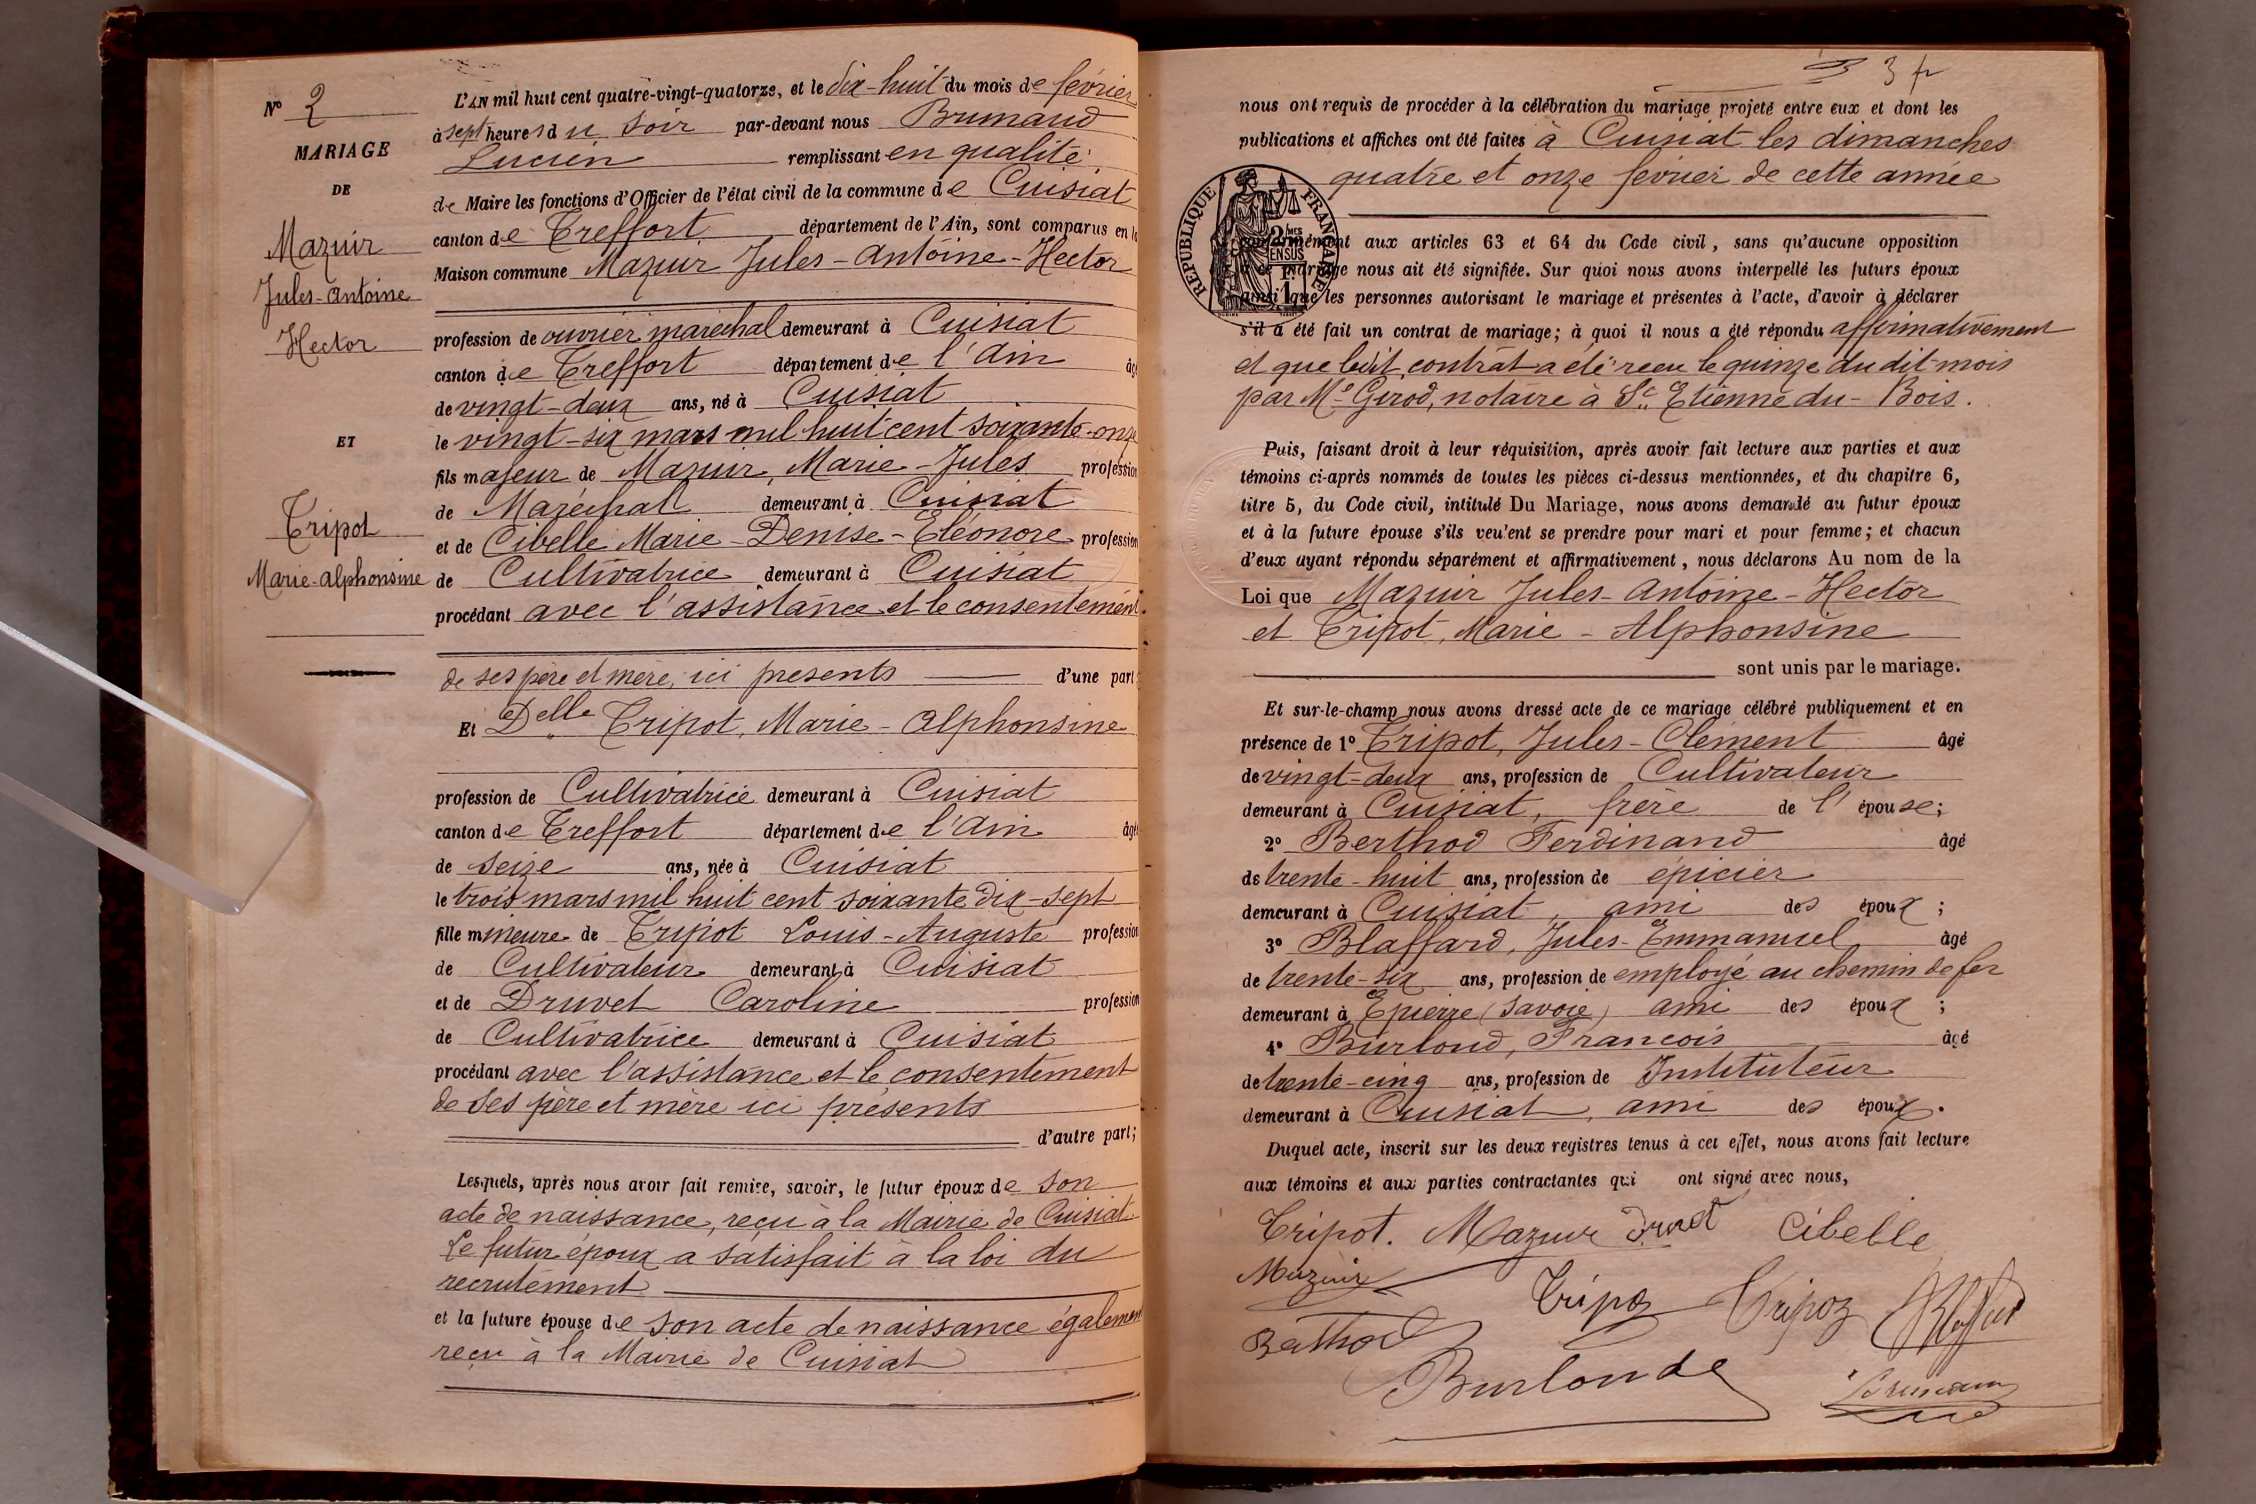 N° 2
MARIAGE
DE
Mazuir
Jules-Antoine
Hector
ET
Tripot
Marie-Alphonsine
L'AN mil huit cent quatre-vingt-quatorze, et le dix-huit du mois de février
à sept heures du soir par-devant nous Brumaud
Lucien remplissant en qualité
de Maire les fonctions d'Officier de l'état civil de la commune de Cuisiat
canton de Treffort département de l'Ain, sont comparus en la
Maison commune Mazuir Jules-Antoine-Hector
profession de ouvrier maréchal demeurant à Cuisiat
canton de Treffort département de l'Ain âgé
de vingt-deux ans, né à Cuisiat
le vingt-six mars mil huit cent soixante-onze
fils majeur de Mazuir, Marie-Jules profession
de Maréchal demeurant à Cuisiat
et de Cibelle Marie-Denise-Eléonore profession
de Cultivatrice demeurant à Cuisiat
procédant avec l'assistance et le consentement
de ses père et mère, ici présents d'une part;
Et Delle Tripot, Marie-Alphonsine
profession de Cultivatrice demeurant à Cuisiat
canton de Treffort département de l'Ain âgée
de seize ans, née à Cuisiat
le trois mars mil huit cent soixante dix-sept
fille mineure de Tripot Louis-Auguste profession
de Cultivateur demeurant à Cuisiat
et de Druvet Caroline profession
de Cultivatrice demeurant à Cuisiat
procédant avec l'assistance et le consentement
de ses père et mère ici présents
d'autre part;
Lesquels, après nous avoir fait remise, savoir, le futur époux de son
acte de naissance, reçu à la Mairie de Cuisiat.
Le futur époux a satisfait à la loi du
recrutement
et la future épouse de son acte de naissance également
reçu à la Mairie de Cuisiat
3 fr
nous ont requis de procéder à la célébration du mariage projeté entre eux et dont les
publications et affiches ont été faites à Cuisiat les dimanches
quatre et onze février de cette année
RÉPUBLIQUE FRANÇAISE
2 MES
EN SUS
conformément aux articles 63 et 64 du Code civil, sans qu'aucune opposition
à ce mariage nous ait été signifiée. Sur quoi nous avons interpellé les futurs époux
ainsi que les personnes autorisant le mariage et présentes à l'acte, d'avoir à déclarer
s'il a été fait un contrat de mariage; à quoi il nous a été répondu affirmativement
et que ledit contrat a été reçu le quinze du dit mois
par Me Girod, notaire à St Etienne du-Bois.
Puis, faisant droit à leur réquisition, après avoir fait lecture aux parties et aux
témoins ci-après nommés de toutes les pièces ci-dessus mentionnées, et du chapitre 6,
titre 5, du Code civil, intitulé Du Mariage, nous avons demandé au futur époux
et à la future épouse s'ils veu'ent se prendre pour mari et pour femme; et chacun
d'eux ayant répondu séparément et affirmativement, nous déclarons Au nom de la
Loi que Mazuir Jules-Antoine-Hector
et Tripot, Marie-Alphonsine
sont unis par le mariage.
Et sur-le-champ nous avons dressé acte de ce mariage célébré publiquement et en
présence de 1° Tripot, Jules-Clément âgé
de vingt-deux ans, profession de Cultivateur
demeurant à Cuisiat, frère de l'épouse;
2° Berthod Ferdinand âgé
de trente-huit ans, profession de épicier
demeurant à Cuisiat, ami des époux;
3° Blaffard, Jules-Emmanuel âgé
de trente-six ans, profession de employé au chemin de fer
demeurant à Epierre (Savoie) ami des époux;
4° Burloud, François âgé
de trente-cinq ans, profession de Instituteur
demeurant à Cuisiat, ami des époux.
Duquel acte, inscrit sur les deux registres tenus à cet effet, nous avons fait lecture
aux témoins et aux parties contractantes qui ont signé avec nous,
Tripot. Mazuir Druvet Cibelle
Mazuir Tripoz Tripoz Blaffard
Berthod
Burloud